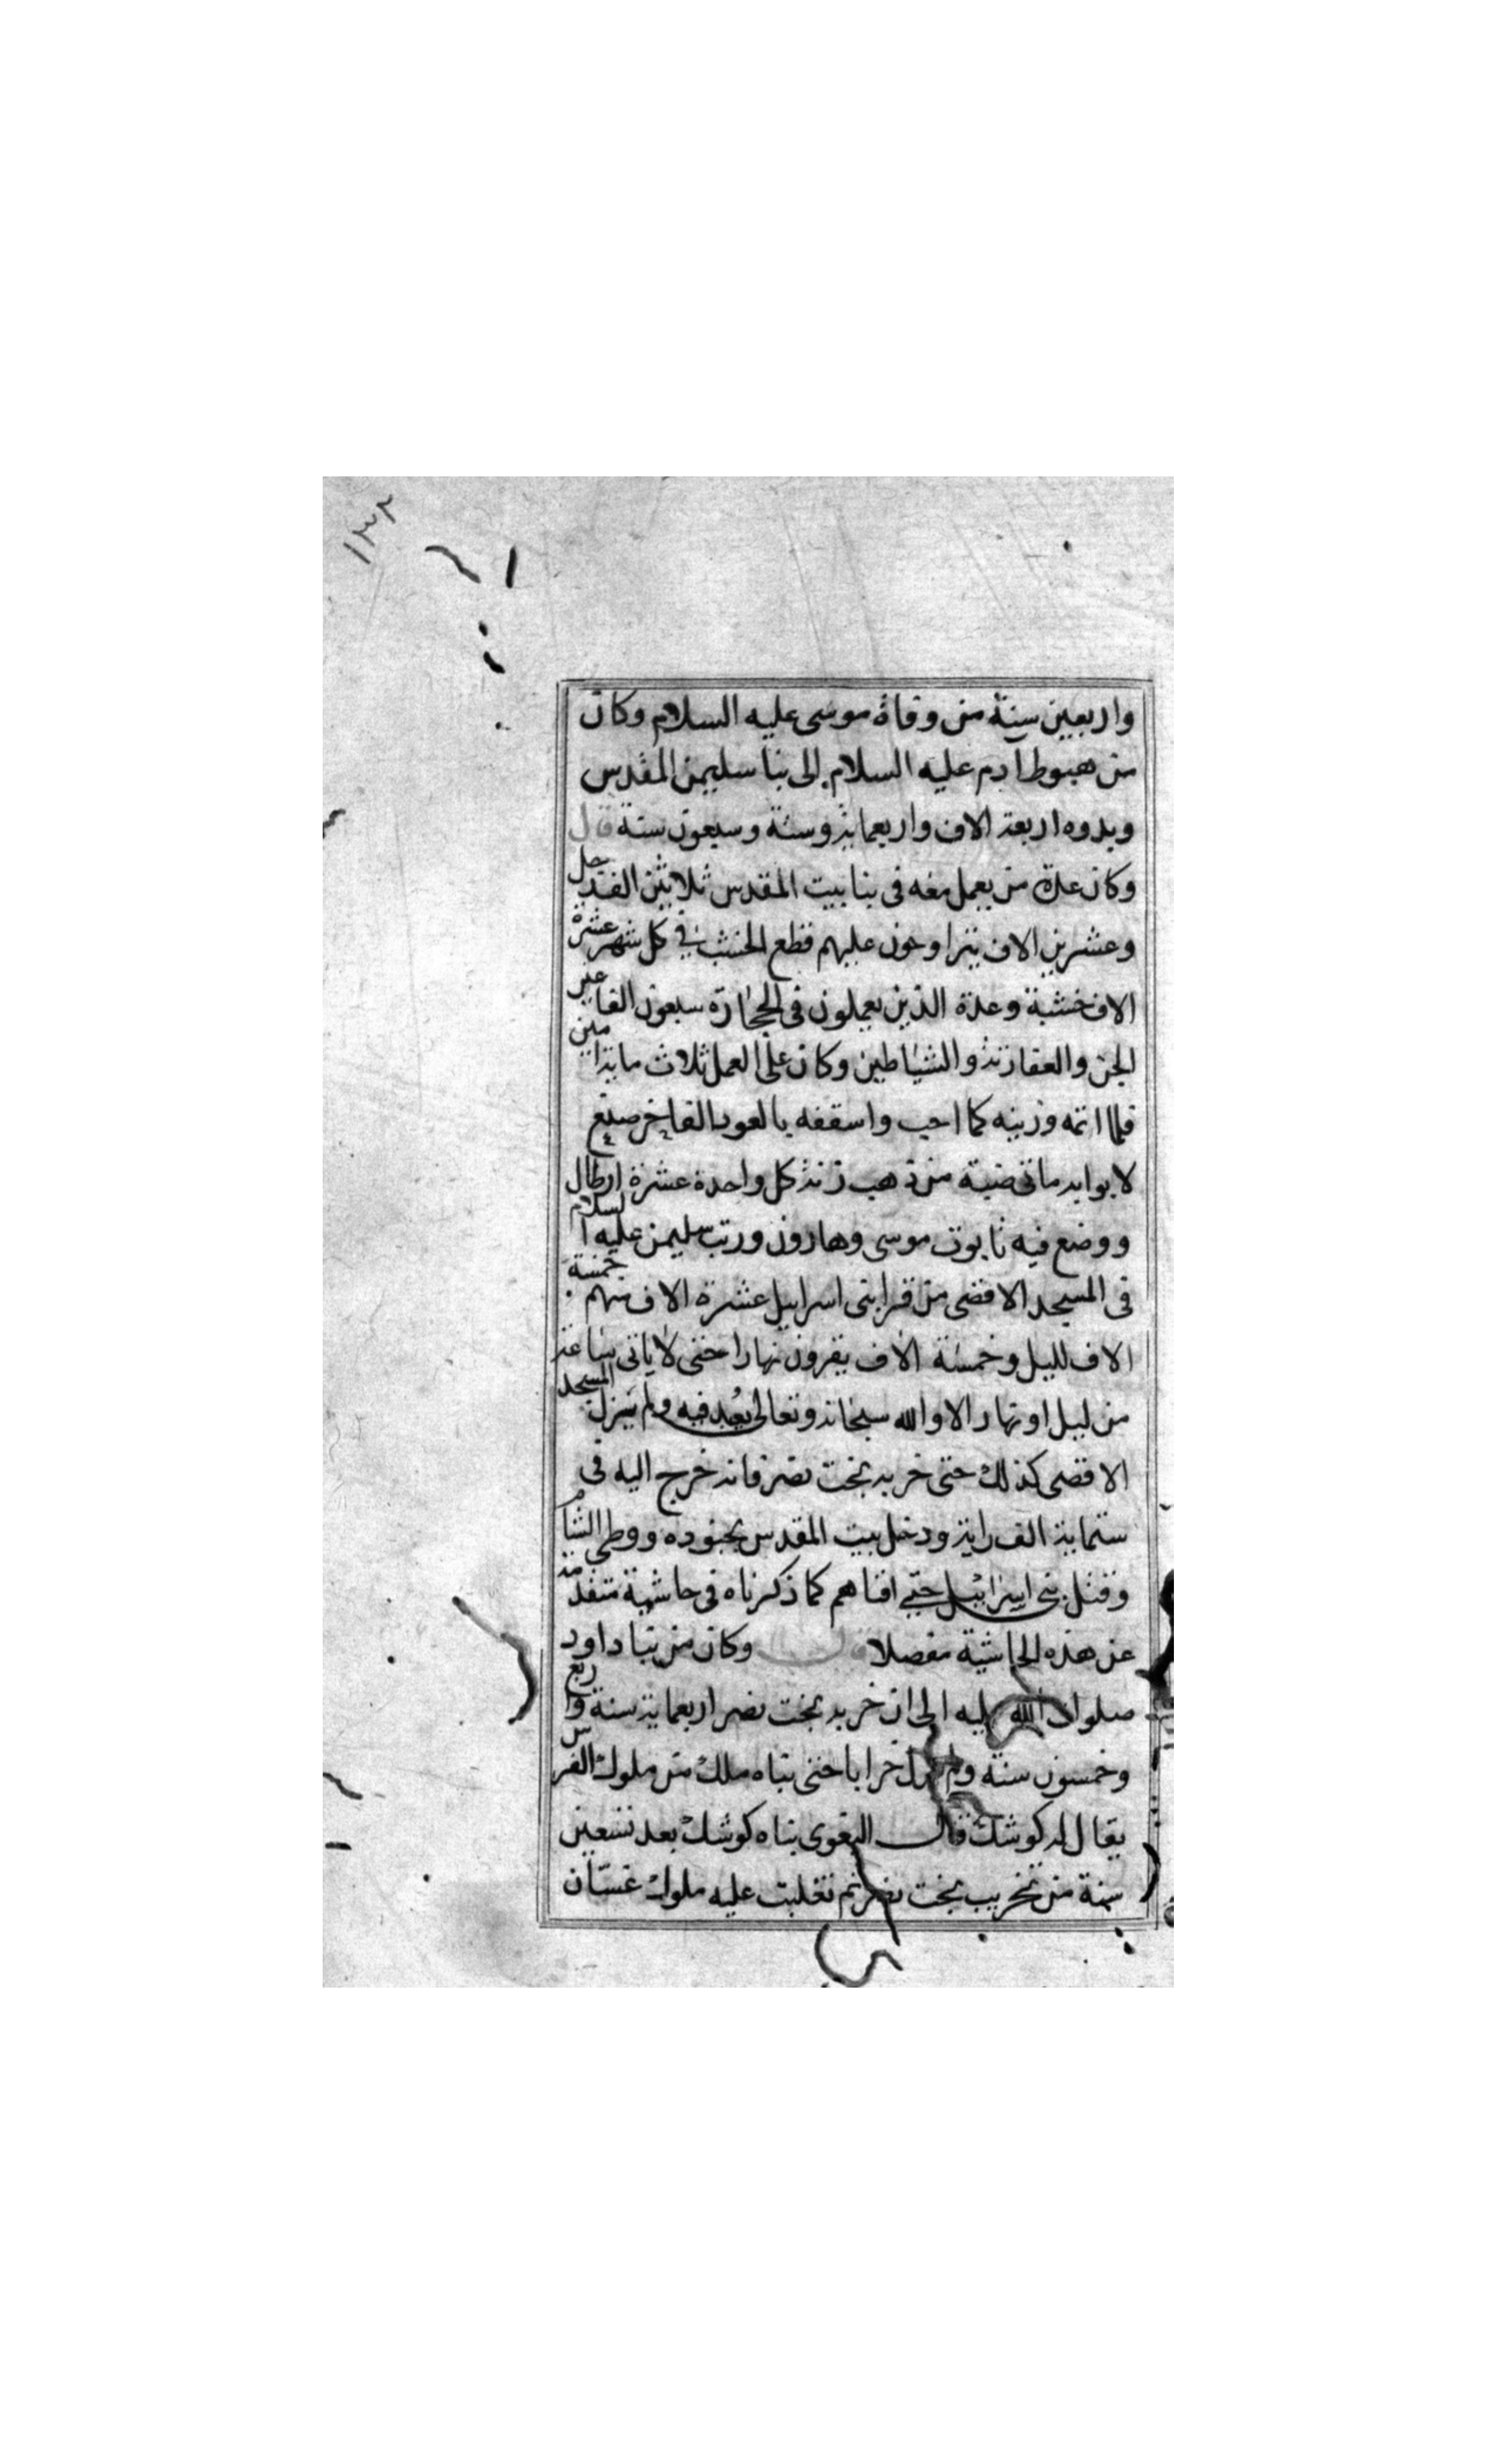 ١٣٢
واربعين سنة من وفاة موسى عليه السلام وكان
من هبوط ادم عليه السلام الى بنا سليمن المقدس
وبدوه اربعة الاف واربعماية وستة وسبعون سنة قال
وكان عدة من يعمل معه فى بنا بيت المقدس ثلاثين الف رجل
وعشرين الاف يتراوحون عليهم قطع الخشب في كل شهر عشرة
الاف خشبة وعدة الذين يعملون فى الحجارة سبعون الفا غير
الجن والعفارتة والشياطين وكان على العمل ثلاث ماية امين
فلما اتمه وزينه كما احب واسقفه بالعود الفاخر صنع
لابوابه مائى ضبة من ذهب زنة كل واحدة عشرة ارطال
ووضع فيه تابوت موسى وهارون ورتب سليمن عليه السلام
فى المسجد الاقصى من قرا بنى اسرايل عشرة الاف منهم خمسة
الاف لليل وخمسة الاف يقرون نهارا حتى لا ياتى ساعة
من ليل او نهار الا والله سبحانه وتعالى يعبد فيه ولم يزل المسجد
الاقصى كذلك حتى خربه بخت نصر فانه خرج اليه فى
ستماية الف راية ودخل بيت المقدس بجنوده ووطى الشام
وقتل بنى اسرائيل حتى افناهم كما ذكرناه فى حاشية متقدمة
عن هذه الحاشية مفصلا قال وكان من بنا داود
صلوات الله عليه الى ان خربه بخت نصر اربعماية سنة واربع
وخمسون سنة ولم يزل خرابا حتى بناه ملك من ملوك الفرس
يقال له كوشك قال البغوى بناه كوشك بعد تسعين
سنة من تخريب بخت نصر ثم تغلبت عليه ملوك غسان